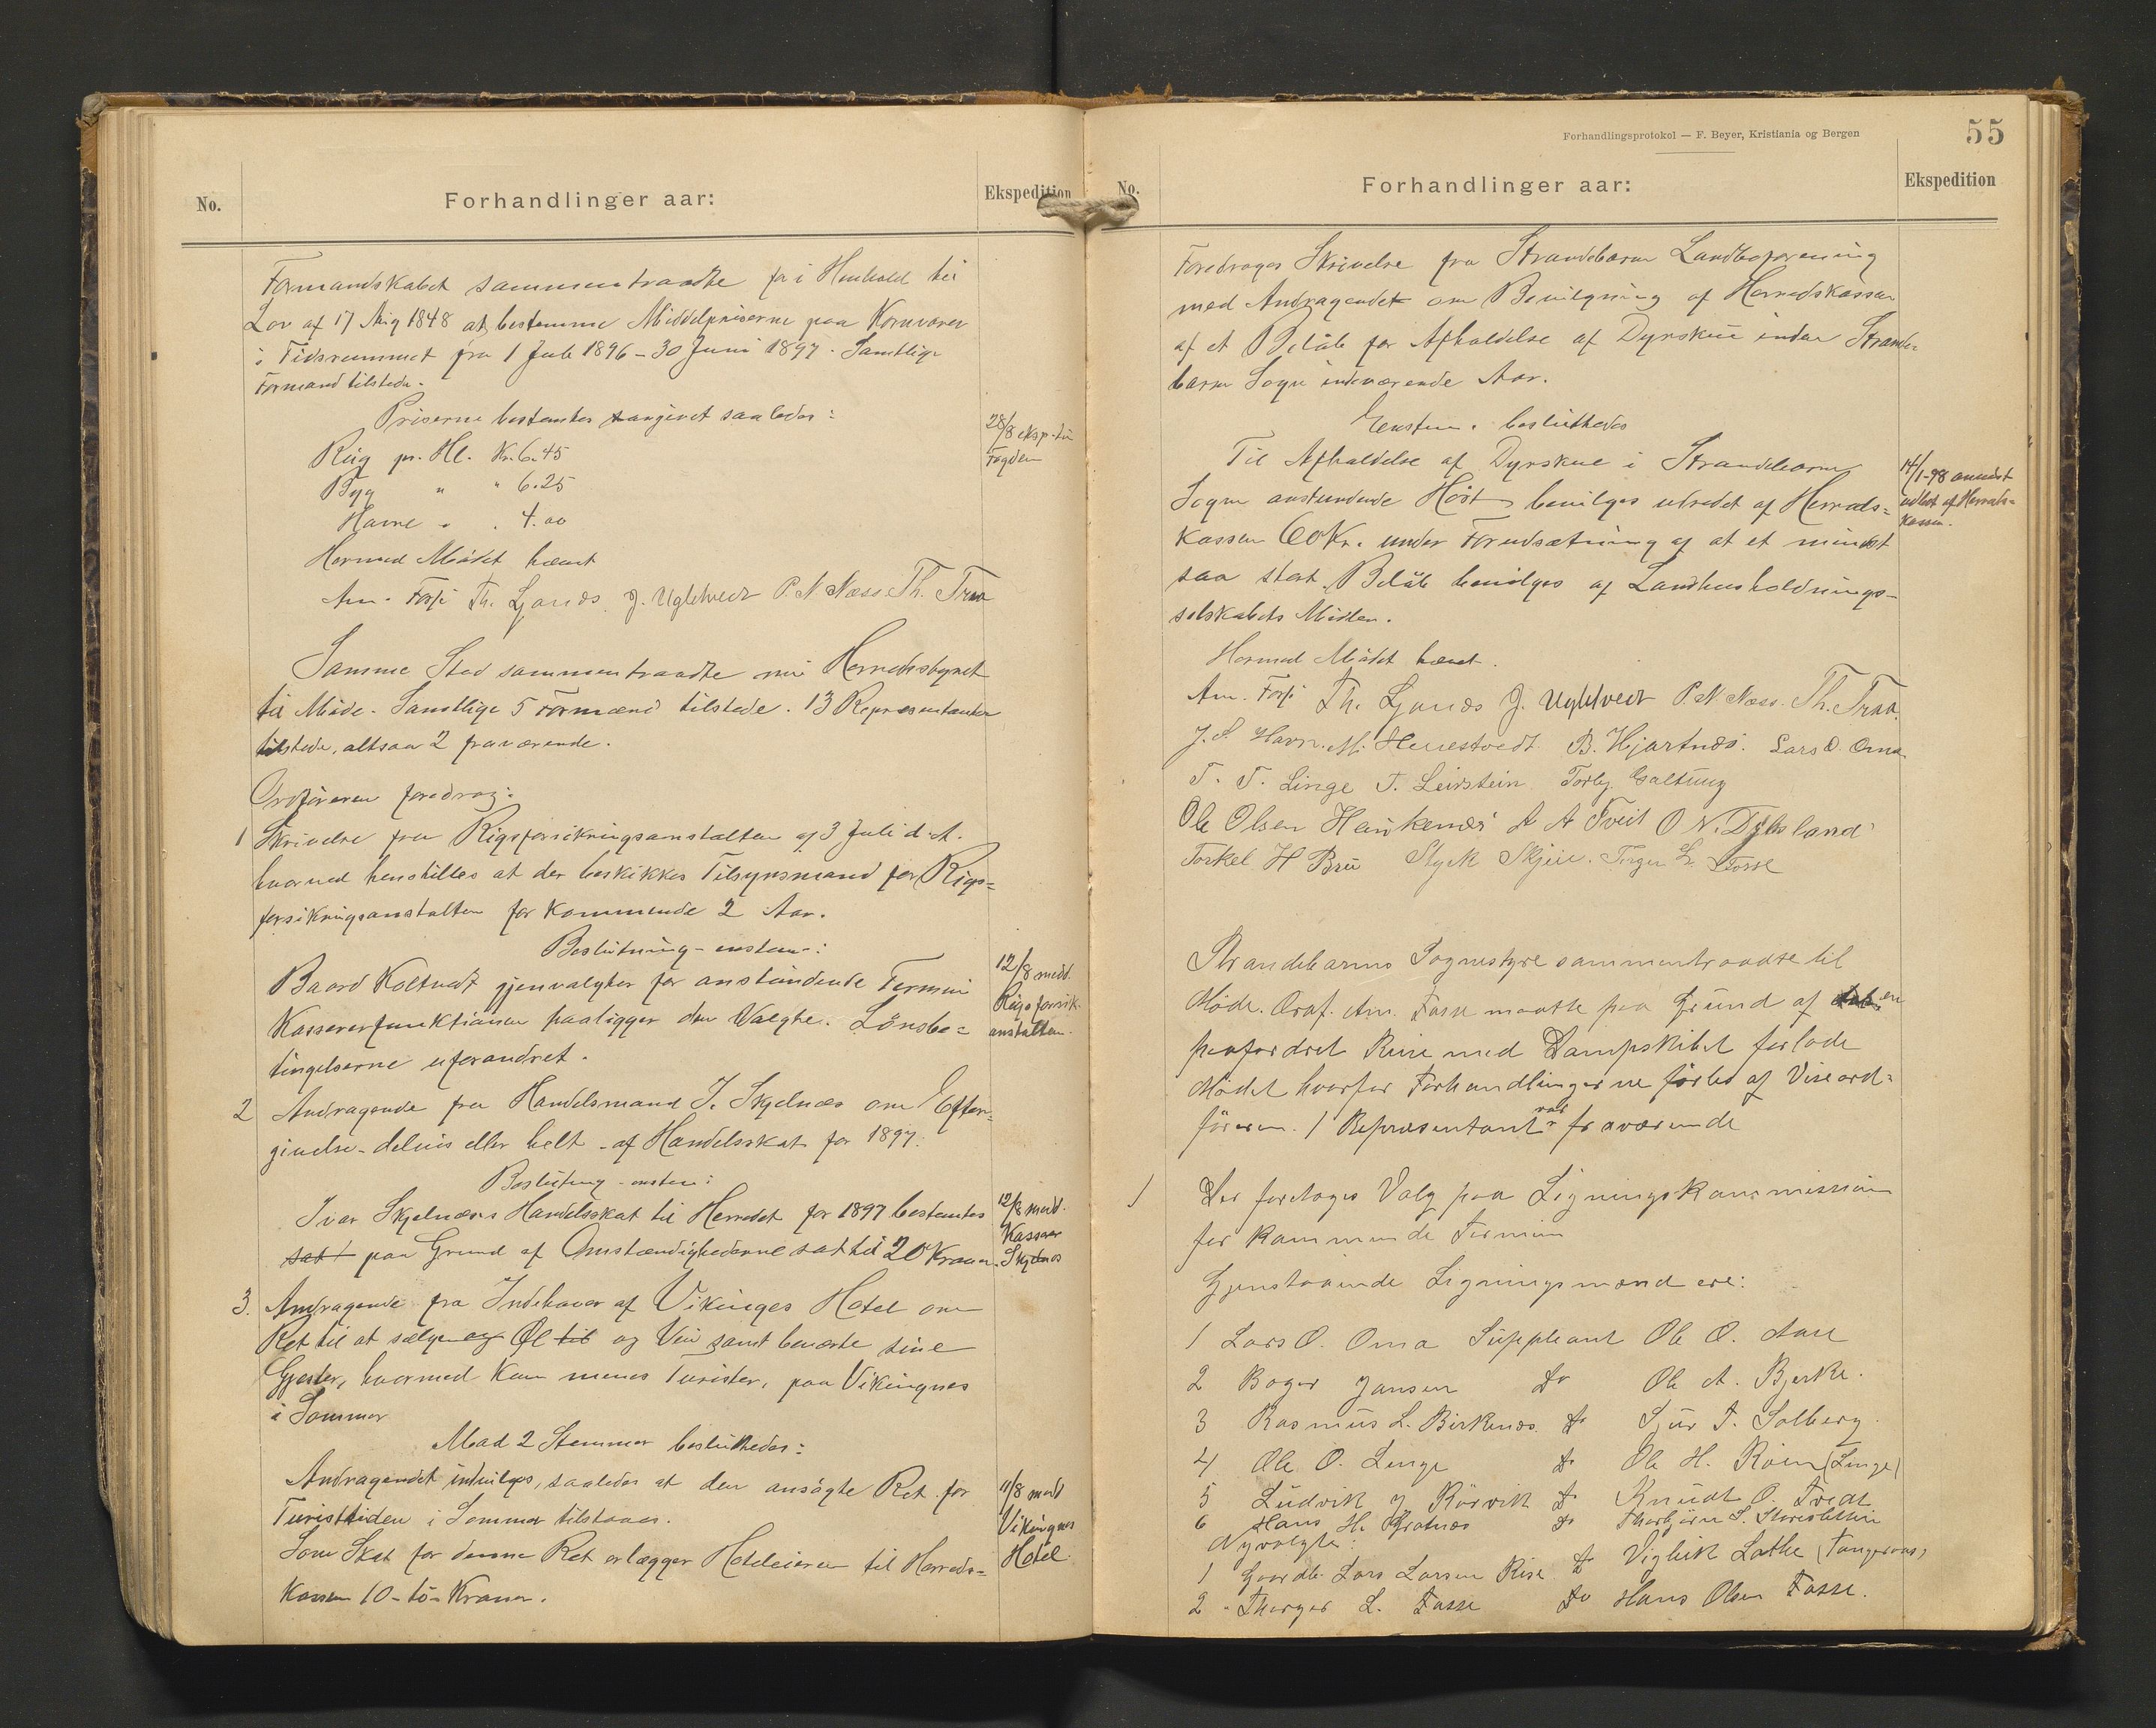 No.
Forhandlinger aar:
Ekspedition
Formandskabet sammentraadte for i Henhold til
Lov af 17 Aug 1848 at bestemme Middelpriserne paa Kornvarer
i Tidsrummet fra 1 Juli 1896 - 30 Juni 1897. Samtlige
Formænd tilstede.
Priserne bestemtes angivet saaledes:
Rug pr. Hl. Kr. 6.45
Byg " " 6.25
Havre " . 4.00
28/8 eksp. til
Fogden
Hermed Mödet hævet
Am. Fosse Th. Ljonæs J. Ugletvedt P. N Næss. Th. Traa
Samme Sted sammentraadte nu Herredsstyret
til Möde. Samtlige 5 Formænd tilstede. 13 Repræsentanter
tilstede, altsaa 2 fraværende.
Ordföreren foredrog:
1 Skrivelse fra Rigsforsikringsanstalten af 3 Juli d. A.
hvorved henstilles at der beskikkes Tilsynsmand for Rigs=
forsikringsanstalten for kommende 2 Aar.
Beslutning - enstem.:
Baard Koltvedt gjenvalgtes for anstundende Termin
Kassererfunktionen paaligger den Valgte. Lönsbe=
tingelserne uforandret.
12/8 medd.
Rigsforsik.
anstalten.
2 Andragende fra Handelsmand I. Skjelnæs om Efter=
givelse - delvis eller helt - af Handelsskat for 1897.
Beslutning - enstem:
Ivar Skjelnæs's Handelsskat til Herredet for 1897 bestemtes
sat paa Grund af Omstændighederne sat til 20 Kroner.
12/8 medd.
Kasserer
Skjelnæs
3. Andragende fra Indehaver af Vikingnes Hotel om
Ret til at sælge og Øl til og Vin samt beværte sine
Gjester, hvormed kun menes Turister, paa Vikingnes
i Sommer
Mod 2 Stemmer besluttedes:
Andragendet indvilges, saaledes at den ansögte Ret for
Turisttiden i Sommer tilstaaes.
Som Skat for denne Ret erlægger Hoteleieren til Herreds=
kassen 10 - ti - Kroner.
11/8 medd
Vikingnes
Hotel
Forhandlingsprotokol — F. Beyer, Kristiania og Bergen
55
No.
Forhandlinger aar:
Ekspedition
Foredroges Skrivelse fra Strandebarm Landboforening
med Andragendet om Bevilgning af Herredskassen
af et Belöb for Afholdelse af Dyrskue inden Strande=
barm Sogn indeværende Aar.
Enstem. besluttedes
Til Afholdelse af Dyrskue i Strandebarm
Sogn anstundende Höst bevilges utredet af Herreds=
kassen 60 Kr. under Forudsætning af at et mindst
saa stort Belöb bevilges af Landhusholdnings-
selskabets Midler.
14/1-98 anvist
udbet af Herreds=
kassen.
Hermed Mödet hævet.
Am. Fosse Th. Ljonæs J. Ugletvedt P. N Næss. Th. Traa.
J. S. Havn. M. Henestvedt. B. Hjartnæs. Lars O. Oma
T. T. Linge T. Leirstein Torbj. Galtung
Ole Olsen Haukenæs A A Tveit O N. Djbsland
Torkel H Bru Styrk Skjeie. Torger L. Fosse
Strandebarms Sognestyre sammentraadte til
Möde. Ordf. Am. Fosse maatte paa Grund af en
paafordret Reise med Dampskibet forlade
Mödet hvorfor Forhandlingerne förtes af Viseord=
föreren. 1 Repræsentant var fraværende
1 Der foretoges Valg paa Ligningskommission
for kommende Termin
Gjenstaaende Ligningsmænd ere:
1 Lars O. Oma Suppleant Ole O. Aase
2 Boger Jansen Do Ole A. Bjerke.
3 Rasmus L. Birkenæs. Do Sjur T. Solberg
4 Ole O. Linge Do Ole H. Röen (Linge)
5 Ludvik J. Rörvik Do Knudt O. Tvedt
6 Hans H. Do Thorbjörn S.
Nyvalgte:
1 Gaardbr. Lars Larsen Rise Do Viglik Lothe (Tangeraas)
2 " Thorger L. Fosse Do Hans Olsen Fosse.